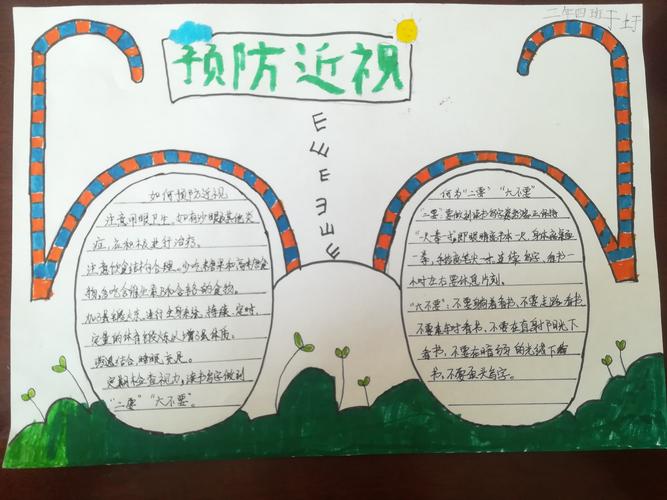 二年四班于圩
预防近视
E
E
E
E
E
E
如何预防近视
注意用眼卫生。如有沙眼或其他炎
症,应积极进行治疗。
注意饮食结构合理。少吃糖果和高糖
物,多吃含维生素
加强锻炼,进行全身系统、持续、定时、
定量的体育锻炼以增强体质。
劳逸结合,睡眠充足。
定期检查视力,读书写字做到
“二要”“六不要”。
何为“二要”“六不要”
“二要”:要做到读书写字姿势端正保持
“一尺一拳一寸”即眼睛离书本一尺,身体离桌
一拳,手指离笔尖一寸,连续写字、看书一
小时左右要休息片刻。
“六不要”:不要躺着看书、不要走路看书、
不要乘车时看书、不要在直射阳光下
看书、不要在暗的光线下看
书、不要歪头写字。